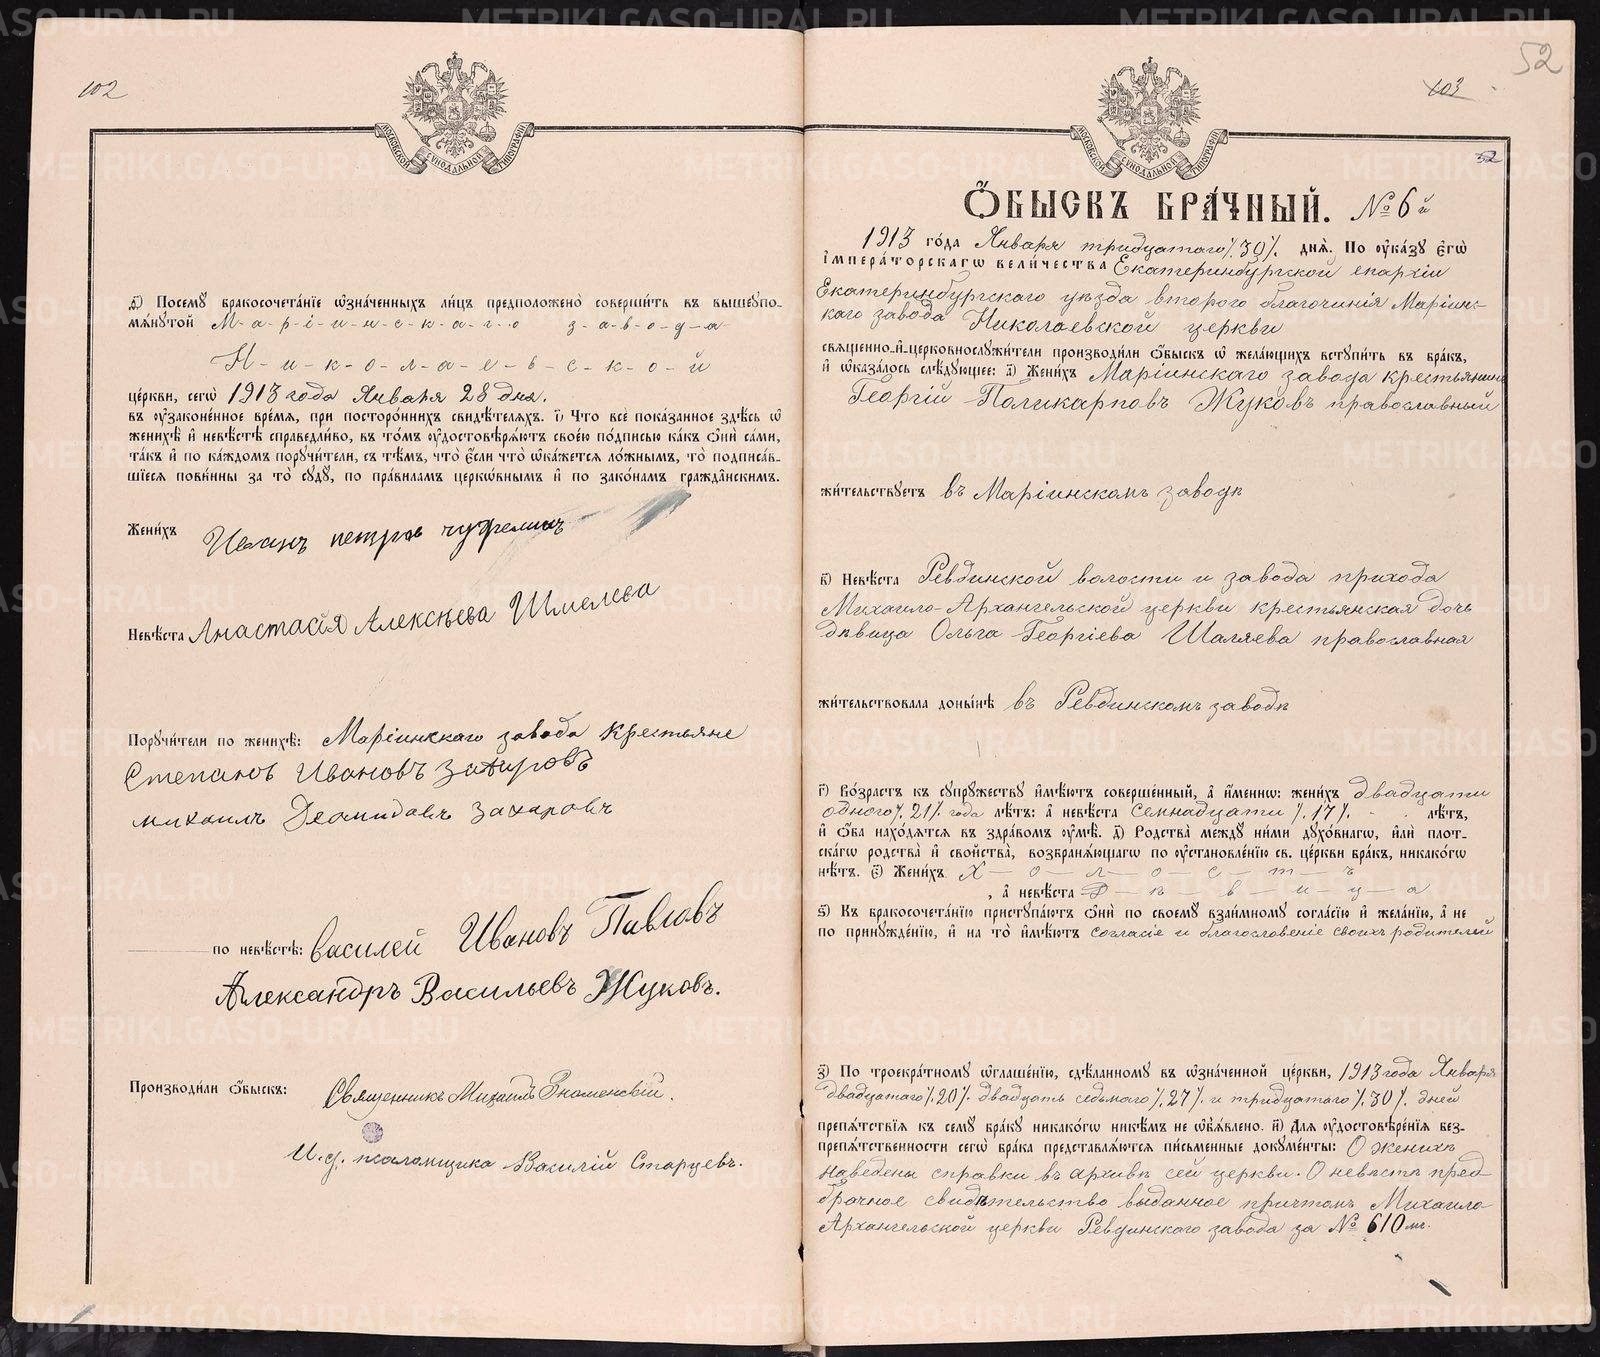 102
МОСКОВСКОЙ СУНОДАЛЬНОЙ ТИПОГРАФІИ
ѳ҃) Посемꙋ̀ бракосочета́нїе ѡ҆зна́ченныхъ ли́цъ предположено̀ соверши́ть въ вышеꙋпо-
мѧ́нꙋтой М-а-р-і-и-н-с-к-а-г-о з-а-в-о-д-а
Н-и-к-о-л-а-е-в-с-к-о-й
це́ркви, сегѡ̀ 1913 года Января 28 дня.
въ ᲂу҆зако́ненное вре́мѧ, при посторо́ннихъ свидѣ́телѧхъ. і҃) Что̀ всѐ пока́занное здѣ́сь ѡ҆
женихѣ̀ и҆ невѣ́стѣ справедли́во, въ то́мъ ᲂу҆достовѣрѧ́ютъ свое́ю по́дписью ка́къ ѻ҆нѝ са́ми,
та́къ и҆ по ка́ждомъ порꙋчи́тели, съ тѣ́мъ, что̀ є҆́сли что̀ ѡ҆ка́жетсѧ ло́жнымъ, то̀ подписа́в-
шїесѧ пови́нны за то̀ сꙋдꙋ̀, по пра́виламъ церко́внымъ и҆ по зако́намъ гражда́нскимъ.
Жени́хъ Иванъ петров
Невѣ́ста Анастасія Алексѣева Шмелева
Порꙋчи́тели по женихѣ̀: Маріинскаго завода крестьяне
Степанов Ивановъ
михаилъ Деомидовъ Захаровъ
по невѣ́стѣ: василей Ивановъ Павловъ
Александръ Васильевъ Жуковъ.
Производи́ли ѻ҆́быскъ: Священникъ Михаилъ Знаменскій.
И.д. псаломщика Василій Старцевъ.
52
103
МОСКОВСКОЙ СУНОДАЛЬНОЙ ТИПОГРАФІИ
52
Ѻ҆́БЫСКЪ БРА́ЧНЫЙ. № 6й
1913 го́да Января тридцатаго /.30/. днѧ̀. По ᲂу҆ка́зꙋ Є҆гѡ̀
І҆мпера́торскагѡ вели́чества Екатеринбургской епархіи
Екатеринбургскаго уѣзда второго благочинія Маріинс-
каго завода Николаевской церкви
свѧще́нно-и҆-церковнослꙋжи́тели производи́ли ѻ҆́быскъ ѡ҆ жела́ющихъ встꙋпи́ть въ бра́къ,
и҆ ѡ҆каза́лось слѣ́дꙋющее: а҃) Жени́хъ Маріинскаго завода крестьянинъ
Георгій Поликарповъ Жуковъ православный
жи́тельствꙋетъ въ Маріинскомъ заводѣ
в҃) Невѣ́ста Ревдинской волости и завода прихода
Михаило-Архангельской церкви крестьянская дочь
дѣвица Ольга Георгіева Шаляева православная
жи́тельствовала доны́нѣ въ Ревдинскомъ заводѣ
г҃) Во́зрастъ къ сꙋпрꙋ́жествꙋ и҆мѣ́ютъ соверше́нный, а҆ и҆́меннѡ: жени́хъ двадцати
одного /.21/. года лѣ́тъ: а҆ невѣ́ста семнадцати /.17/. лѣ́тъ,
и҆ ѻ҆́ба нахо́дѧтсѧ въ здра́вомъ ᲂу҆мѣ̀. д҃) Родства̀ междꙋ̀ ни́ми дꙋхо́внагѡ, и҆лѝ плот-
ска́гѡ родства̀ и҆ свойства̀, возбранѧ́ющагѡ по ᲂу҆становле́нїю св. це́ркви бра́къ, никако́гѡ
нѣ́тъ. є҃) Жени́хъ Х-о-л-о-с-т-ъ
, а҆ невѣ́ста Д-ѣ-в-и-ц-а
ѕ҃) Къ бракосочета́нїю пристꙋпа́ютъ ѻ҆нѝ по своемꙋ̀ взаи́мномꙋ согла́сїю и҆ жела́нїю, а҆ не
по принꙋжде́нїю, и҆ на то̀ и҆мѣ́ютъ согласіе и благословеніе своихъ родителей
з҃) По троекра́тномꙋ ѡ҆глаше́нїю, сдѣ́ланномꙋ въ ѡ҆зна́ченной це́ркви, 1913 года Января
двадцатаго /.20/. двадцать седьмаго /.27/. и тридцатаго /.30/. дней
препѧ́тствїѧ къ семꙋ̀ бра́кꙋ никако́гѡ никѣ́мъ не ѡ҆б̾ѧ́влено. и҃) Длѧ̀ ᲂу҆достовѣре́нїѧ без-
препѧ́тственности сегѡ̀ бра́ка представлѧ́ютсѧ пи́сьменные докꙋме́нты: О женихѣ
наведены справки въ архивѣ сей церкви. О невѣстѣ пред-
брачное свидѣтельство выданное причтомъ Михаило-
Архангельской церкви Ревдинскаго завода за № 610мъ.